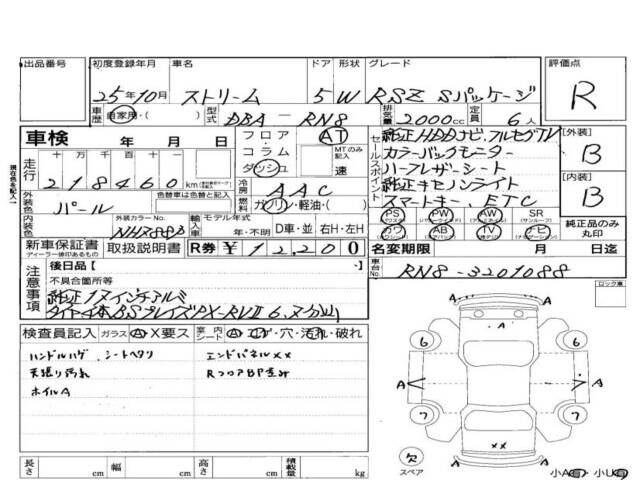 出品番号 初度登録年月 車名 ドア 形状 グレード 評価点
25年10月 ストリーム 5 W RSZ Sパッケージ R
車歴 自家用・( ) 型式 DBA - RN8 排気量 2000cc 定員 6人
車検 年 月 日 フロア AT セールスポイント 純正HDDナビ、アルセグTV 【外装】
走行 十万 万 千 百 十 コラム MTのみ記入 カラーバックモニター B
218460km ダッシュ 速 ハーフレザーシート 【内装】
外装色 パール 色替車は色替と記入 冷房 AAC 純正キセノンライト B
内装色 燃料 ガソリン・軽油・( ) スマートキー、ETC
PS (パワステ) PW (パワーウィンド) AW (アルミホイール) SR (サンルーフ) 純正品のみ丸印
カワ (カワシート) AB (エアバッグ) TV (テレビ) ナビ (ナビゲーション)
外装カラーNo. NH788P 輸入車 モデル年式 年・不明 D車・並 右H・左H
新車保証書 ディーラー捺印あるもの 取扱説明書 R券 ¥12,200 名変期限 月 日迄
注意事項 後日品【 】 車台No. RN8-3201088
不具合箇所等 ロック車
純正17インチアルミ
検査員記入 ガラス A・X要ス 室内シート A・コゲ・穴・汚れ・破れ
ハンドルハゲ 、シートヘタリ エンドパネルXX
天張り汚れ RフロアBP歪み
ホイルA
A
6 6
A A
7 7
XX
欠
スペア 小A有・小U有
長さ cm 幅 cm 高さ cm 積載量 kg
現在色を記入